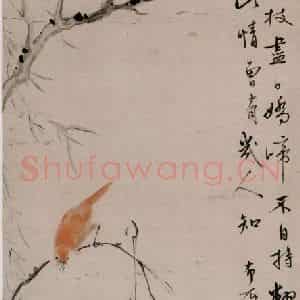 枝盡日嬌啼不自持
情曾有幾人知
Shufawang.CN